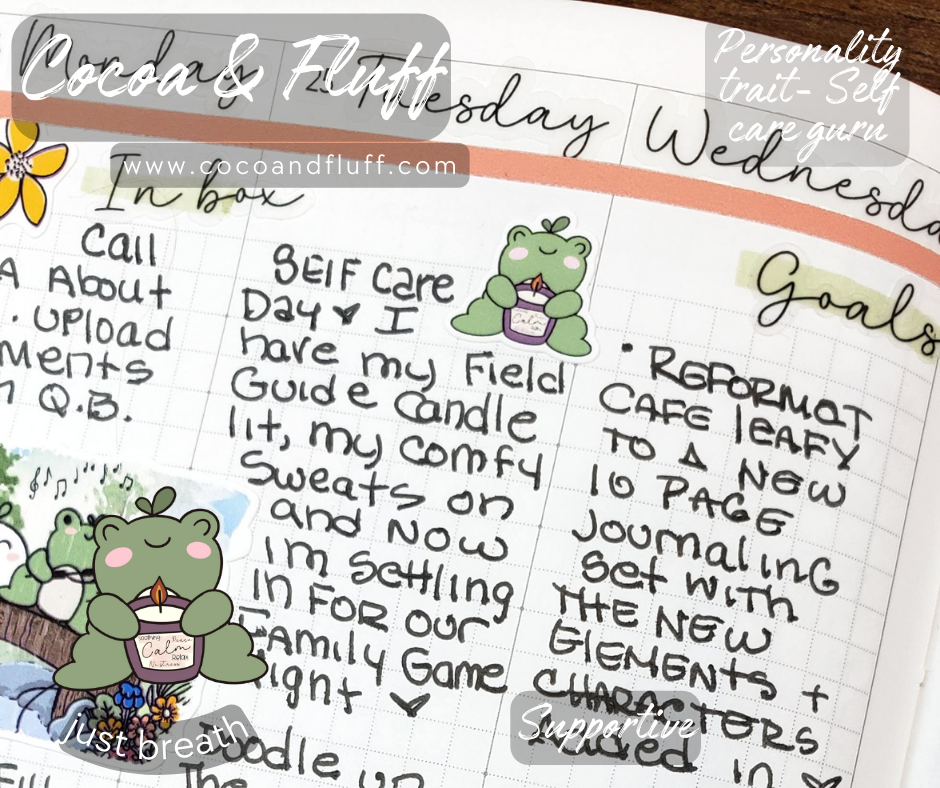 Cocoa & Fluff
www.cocoandfluff.com
Personality
trait- Self
care guru
Monday
Tuesday
Wednesda
In box
Call
A About
. UPload
ments
n Q.B.
SElF Care
Day I
have my Field
Guide Candle
lit, my comfy
Sweats on
and Now
Im Settling
In FOR our
Family Game
Night
Calm
Doodle up
The
Goals
• REFORMAT
CAFE lEAFY
TO A NEW
10 PAGE
Journaling
Set With
THE NEW
ElEMENts +
CHARACTERS
Added in
Calm
Relax
just breath
Supportive
Fill